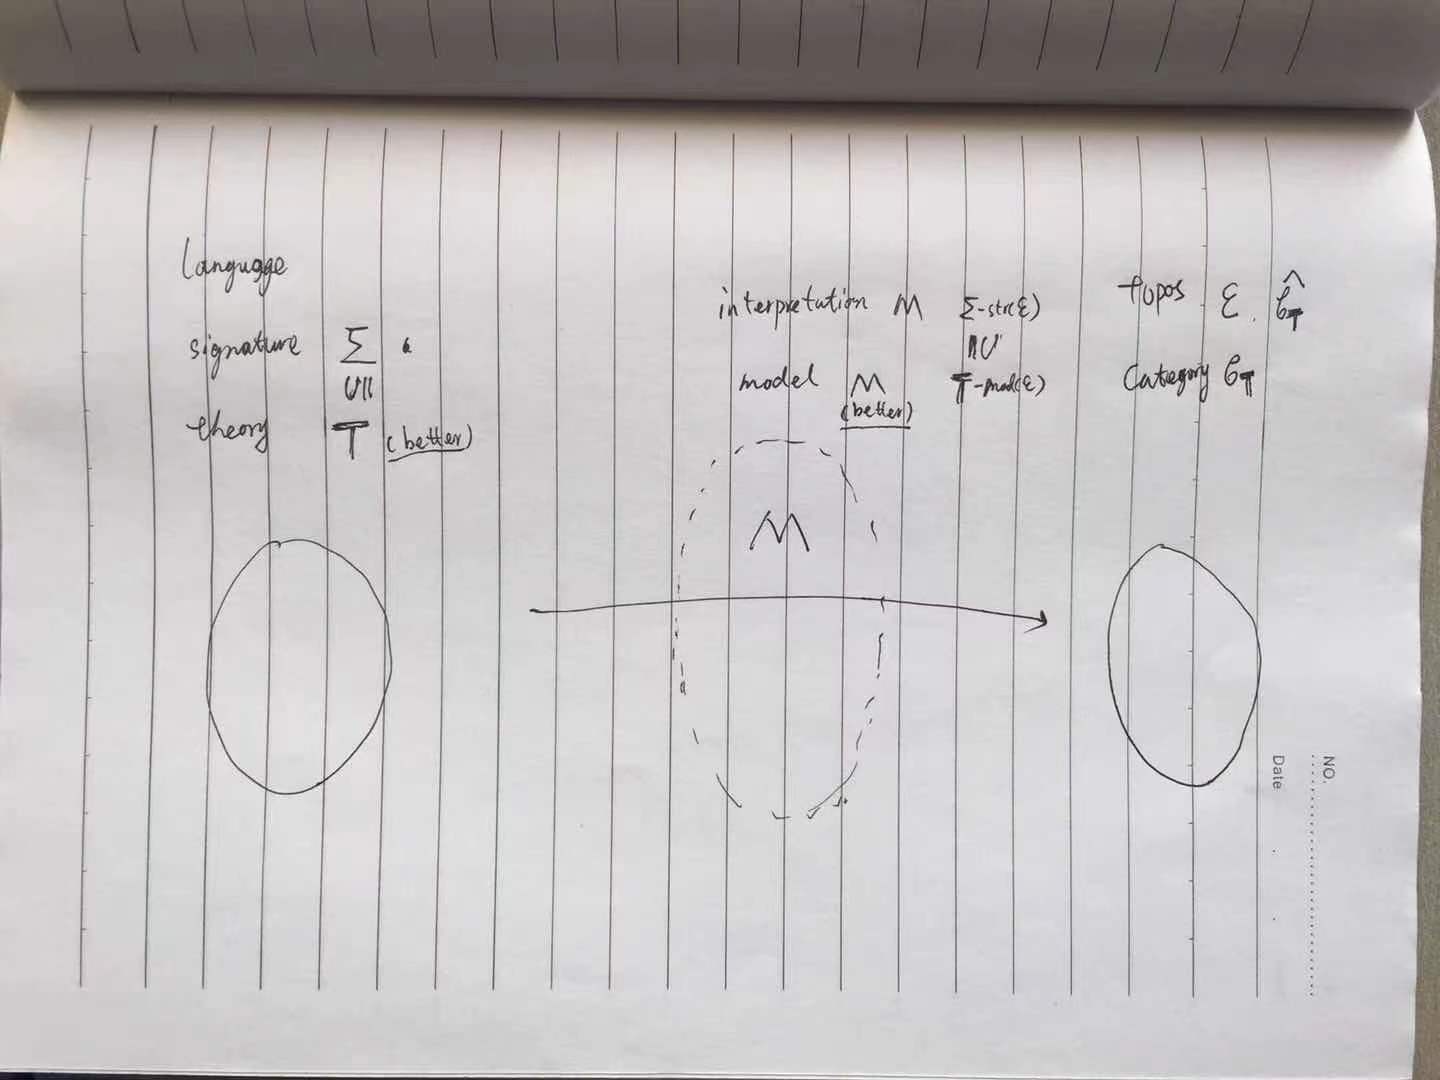 language
signature Σ
∪||
theory T (better)
interpretation M Σ-str(ε)
||∪
model M T-mod(ε)
(better)
topos ε. Ĉ_T
Category C_T
M
NO.
Date